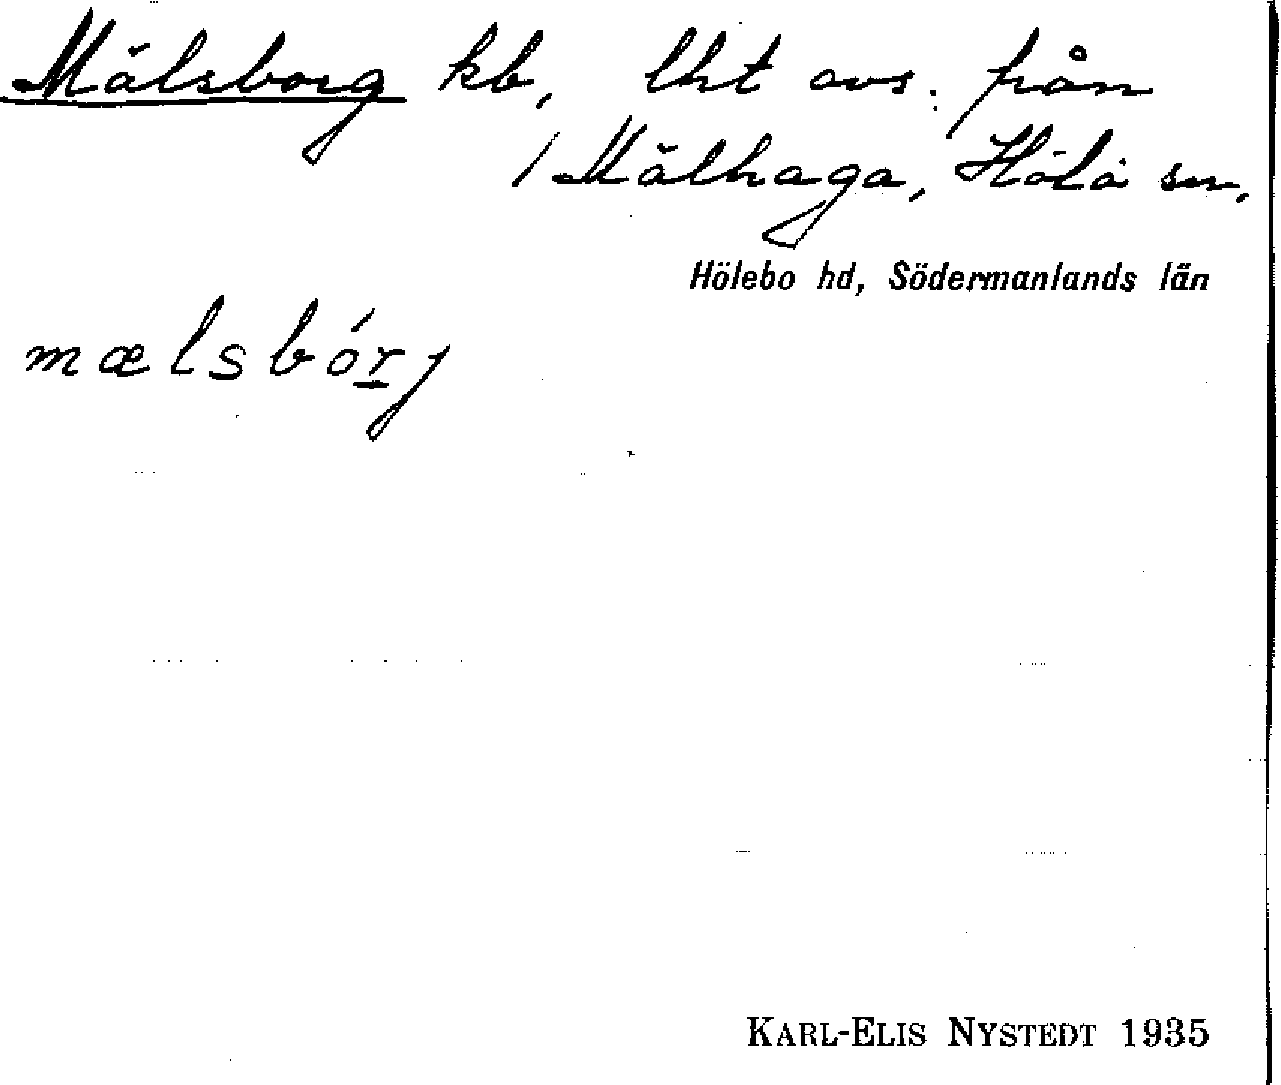 Mälsborg kb, lht avs. från
/Mälhaga, Hölö sn,
Hölebo hd, Södermanlands län
mælsbórj
KARL-ELIS NYSTEDT 1935